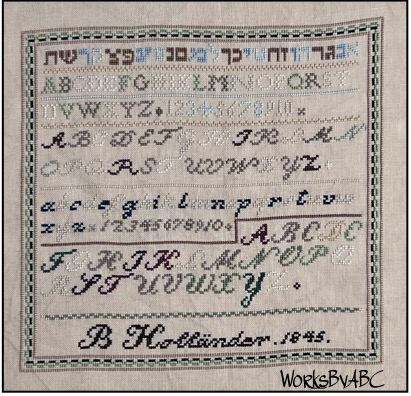 ABCDEFGHIKLMNOPQRST
UVWXYZ.12345678910 x
ABCDEFGHIJKLMN
OPQRSTUVWXYZ.
abcdefghiklmnopqrstuvw
xyz×12345678910× ABCDE
FGHIKLMNOPQ
RSTUVWXYZ.
B Holländer. 1845.
WorksByABC